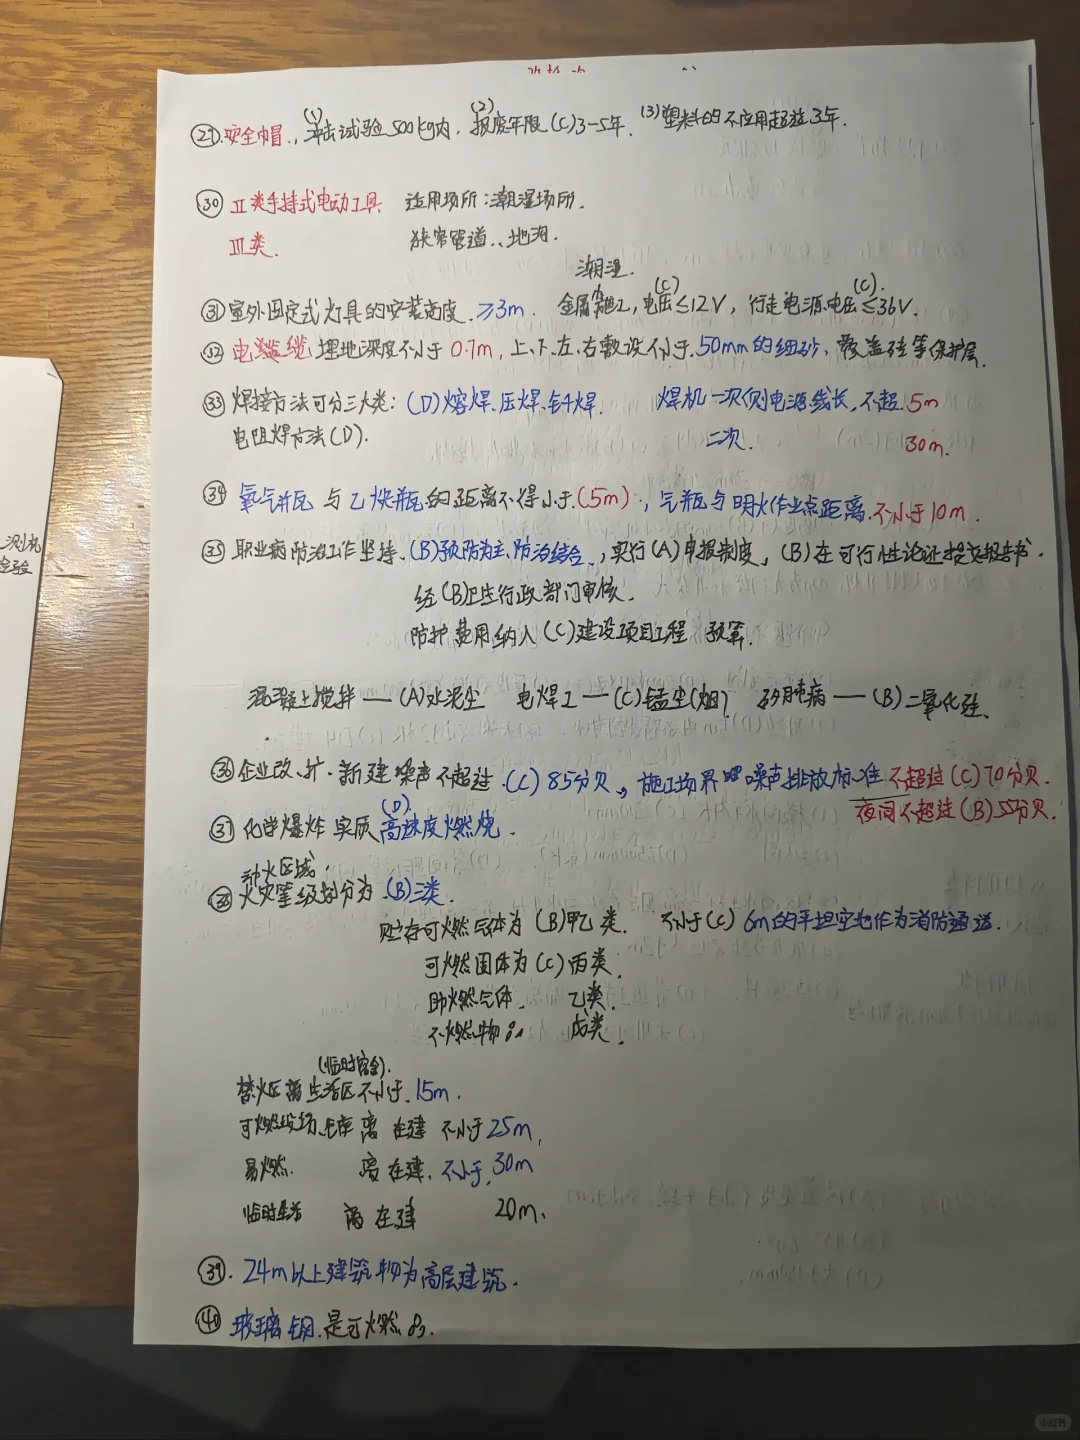 ㉙.安全帽., (1)冲击试验500kg内. (2)报废年限(C)3-5年. (3)塑料的不应用超过3年.
㉚ Ⅱ类手持式电动工具 适用场所:潮湿场所.
Ⅲ类. 狭窄管道、地沟.
潮湿.
㉛ 室外固定式灯具的安装高度.≥3m. 金属容器内施工,电压(C)≤12V,行走电源电压(C).≤36V.
㉜ 电缆埋地深度不小于0.7m,上、下、左、右敷设不小于50mm的细砂,覆盖砖等保护层.
㉝ 焊接方法可分三大类:(D)熔焊.压焊.钎焊. 焊机一次侧电源线长.不超.5m
电阻焊方法(D). 二次. 30m.
㉞ 氧气瓶与乙炔瓶的距离不得小于(5m).,气瓶与明火作业点距离.不小于10m.
㉟ 职业病防治工作坚持.(B)预防为主.防治结合.,实行(A)申报制度,(B)在可行性论证提交报告书.
经(B)卫生行政部门审核.
防护费用纳入(C)建设项目工程预算.
混凝土搅拌——(A)水泥尘 电焊工——(C)锰尘(烟) 矽肺病——(B)二氧化硅.
㊱ 企业改、扩.新建噪声不超过.(C)85分贝,施工场界噪声排放标准不超过(C)70分贝.
夜间不超过(B)55分贝.
㊲ 化学爆炸实质(D).高速度燃烧.
动火区域.
㊳ 火灾等级划分为.(B)三类.
贮存可燃气体为(B)甲乙类. 不小于(C)6m的平坦空地作为消防通道.
可燃固体为(C)丙类.
助燃气体. 乙类.
不燃物品 戊类.
(临时宿舍).
禁火区离生活区不小于.15m.
可燃堆场、仓库离在建不小于25m,
易燃. 离在建.不小于.30m
临时生活 离在建 20m.
㊴. 24m以上建筑物为高层建筑.
㊵ 玻璃钢.是可燃品.
测机
检验
小红书